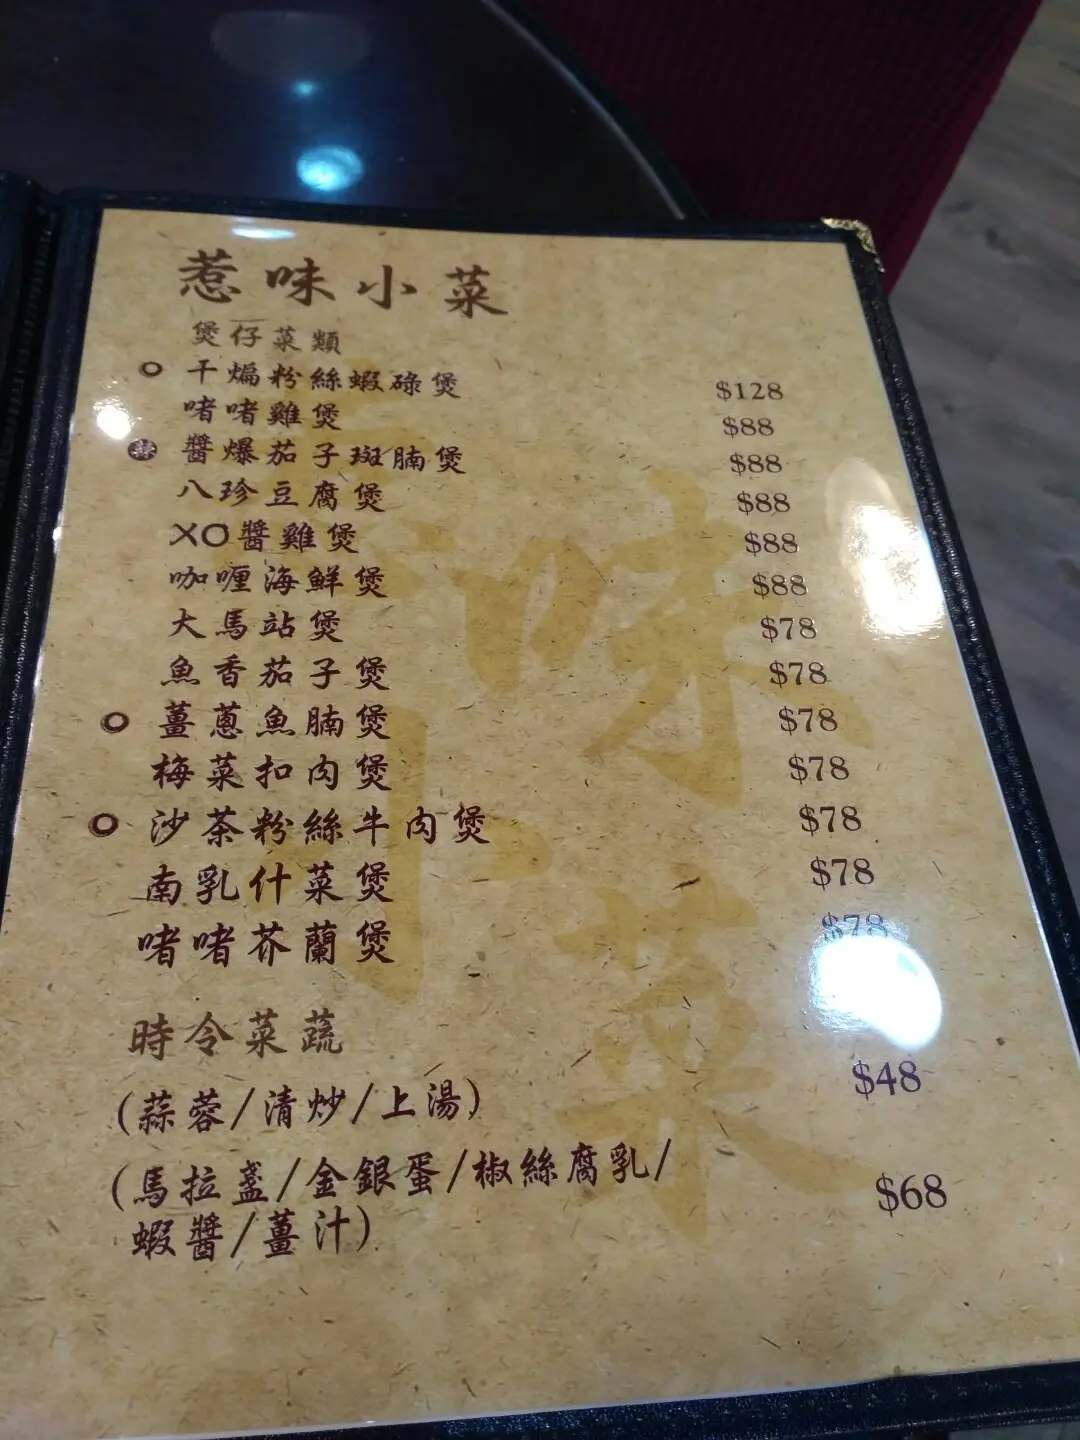 惹味小菜
煲仔菜類
干煸粉絲蝦碌煲 $128
啫啫雞煲 $88
醬爆茄子斑腩煲 $88
八珍豆腐煲 $88
XO醬雞煲 $88
咖喱海鮮煲 $88
大馬站煲 $78
魚香茄子煲 $78
薑蔥魚腩煲 $78
梅菜扣肉煲 $78
沙茶粉絲牛肉煲 $78
南乳什菜煲 $78
啫啫芥蘭煲 $78
時令菜蔬
(蒜蓉/清炒/上湯) $48
(馬拉盞/金銀蛋/椒絲腐乳/ $68
蝦醬/薑汁)